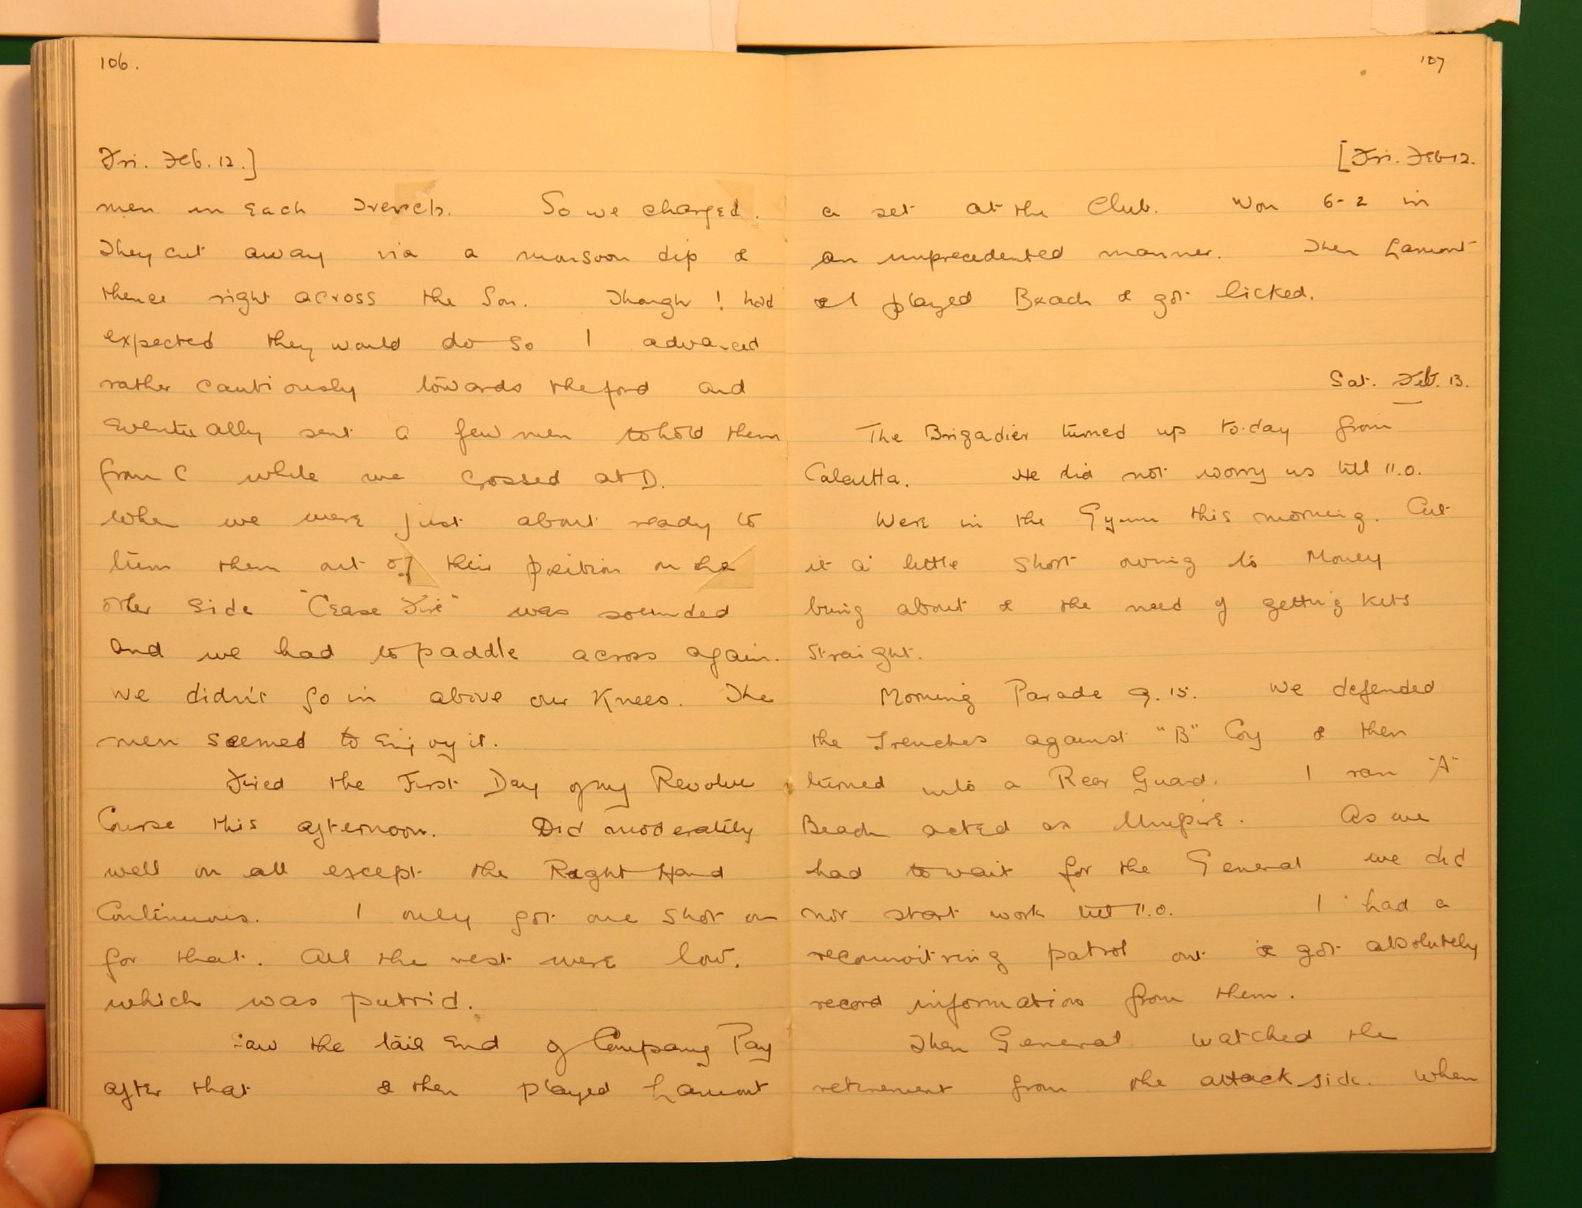 106.
Fri. Feb. 12.]
men in each Trench. So we charged.
They cut away via a monsoon dip &
thence right across the Son. Though I had
expected they would do so I advanced
rather cautiously towards the ford and
eventually sent a few men to hold them
from C while we crossed at D.
When we were just about ready to
turn them out of their position on the
other side "Cease Fire" was sounded
and we had to paddle across again.
We didn't go in above our knees. The
men seemed to enjoy it.
Fired the First Day of my Revolver
Course this afternoon. Did moderately
well on all except the Right Hand
Continuous. I only got one shot on
for that. All the rest were low.
which was putrid.
Saw the tail end of Company Pay
after that & then played Lamont
107
[Fri. Feb 12.
a set at the Club. Won 6-2 in
an unprecedented manner. Then Lamont
& I played Beach & got licked.
Sat. Feb. 13.
The Brigadier turned up to-day from
Calcutta. He did not worry us till 11.0.
Were in the Gymn this morning. Cut
it a little short owing to Money
being about & the need of getting kits
straight.
Morning Parade 9.15. We defended
the Trenches against "B" Coy & then
turned into a Rear Guard. I ran "A"
Beach acted as Umpire. As we
had to wait for the General we did
not start work till 11.0. I had a
reconnoitring patrol out & got absolutely
record information from them.
Then General watched the
retirement from the attack side. When